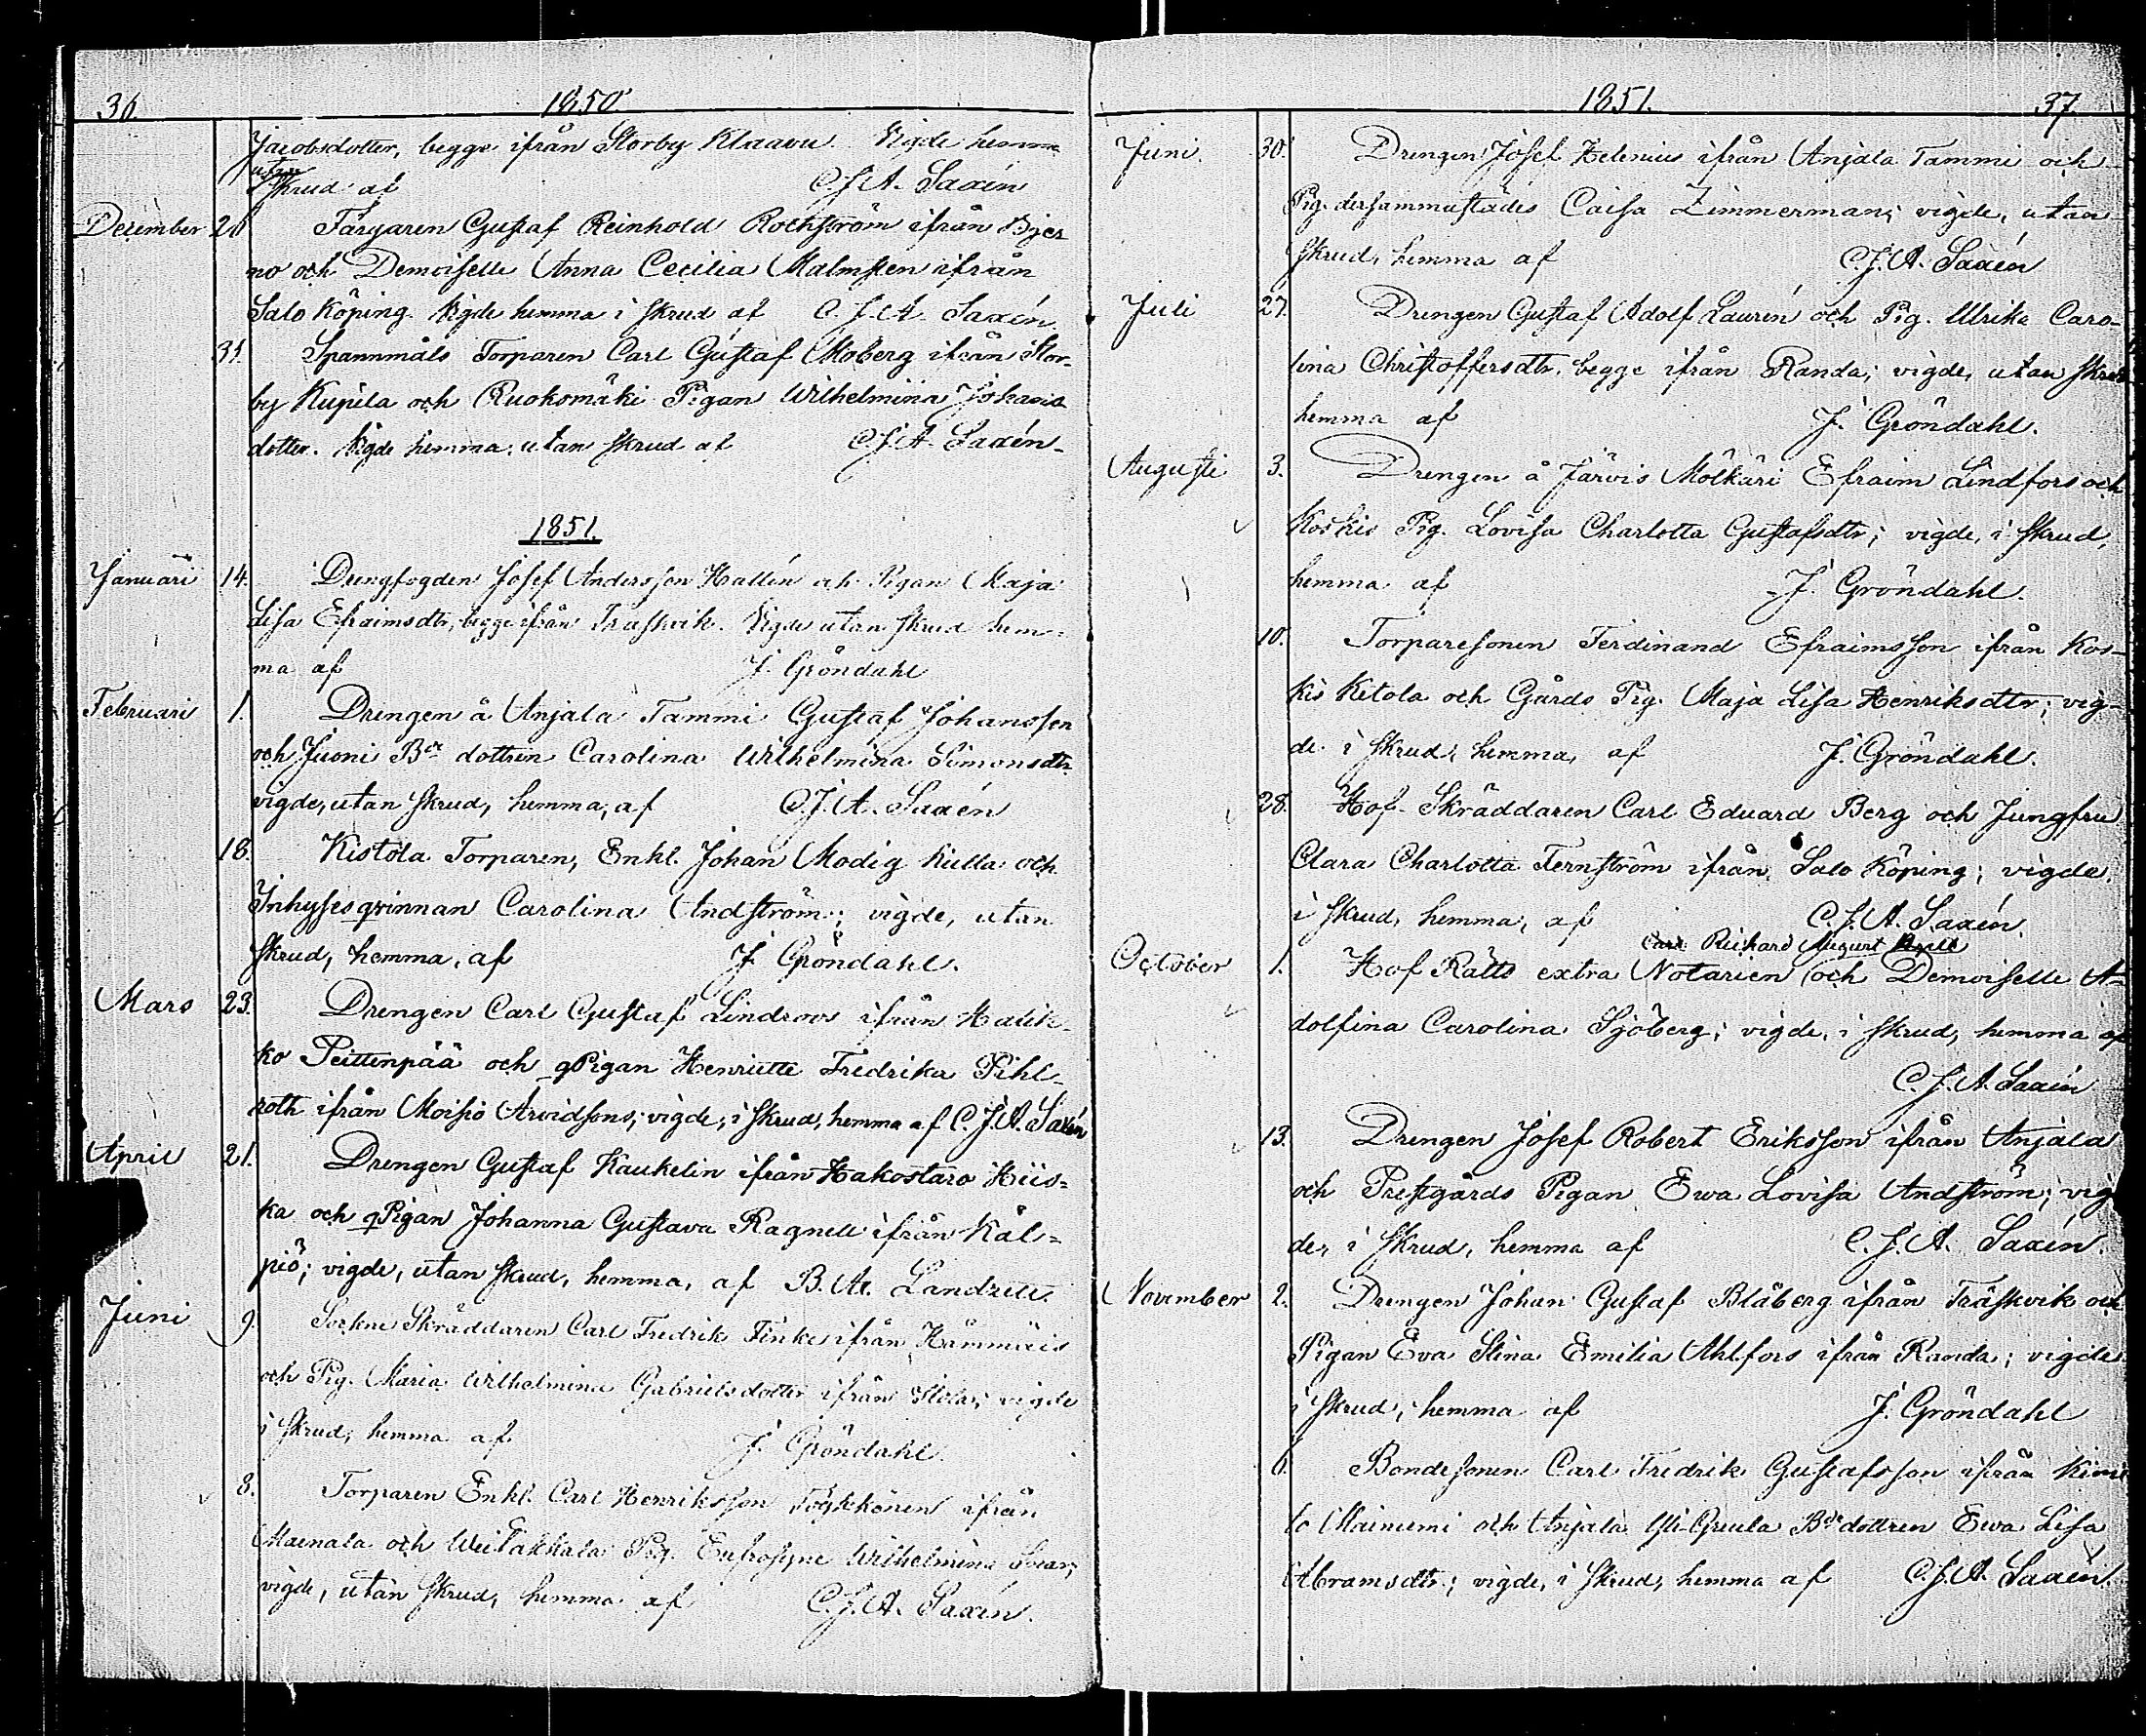 36. 1850.
Jacobsdotter, begge ifrån Storby Klaavu Vigde hemma
utan
Skrud af C. J. A. Saxén
December 26 Färgaren Gustaf Reinhold Rochström ifrån Bjer
no och Demoiselle Anna Cecilia Malmsten ifrån
Salo Köping. Vigde hemma i skrud af C. J. A. Saxén.
31. Spannmåls Torparen Carl Gustaf Moberg ifrån Stor-
by Kujula och Ruokomäki Pigan Wilhelmina Johans
dotter. Vigde hemma, utan skrud af C. J. A. Saxén.
1851.
Januari 14. Drengfogden Josef Andersson Hallén och Pigan Maja
Lisa Efraimsdtr, begge ifrån Träskvik. Vigde utan skrud hem-
ma af J. Gröndahl
Februari 1. Drengen å Anjala Tammi Gustaf Johansson
och Juoni Bde dottren Carolina Wilhelmina Simonsdtr
vigde, utan skrud, hemma, af C. J. A. Saxén
18. Kistola Torparen, Enkl. Johan Modig Kulla och
Inhyses qvinnan Carolina Andström; vigde, utan
skrud, hemma, af J. Gröndahl.
Mars 23. Drengen Carl Gustaf Lindroos ifrån Halik-
ko Peittenpää och qPigan Henriette Fredrika Pihl-
roth ifrån Moisio Arvidsons; vigde, i skrud, hemma af C. J. A. Saxén
April 21. Drengen Gustaf Kaukelin ifrån Hakostaro Hiis-
ka och qPigan Johanna Gustava Ragnell ifrån Käl-
piö; vigde, utan skrud, hemma, af B. A. Landzett.
Juni 9. Sockne Skräddaren Carl Fredrik Finke ifrån Hämmäis
och Pig. Maria Wilhelmina Gabrielsdotter ifrån vigde
i skrud, hemma af J. Gröndahl.
8. Torparen Enkl. Carl Henriksson Töykkönen ifrån
Maenala och Weitakkala Pig. Eufrosyne Wilhelmina Svan;
vigde, utan skrud, hemma af C. J. A. Saxén.
1851. 37.
Juni. 30. Drengen Josef Helenius ifrån Anjala Tammi och
Pig. dersammastädes Caisa Zimmerman; vigde, utan
skrud, hemma af C. J. A. Saxén
Juli 27. Drengen Gustaf Adolf Laurén och Pig. Ulrika Caro-
lina Christoffersdtr. begge ifrån Randa; vigde, utan skrud
hemma af J. Gröndahl.
Augusti 3. Drengen å Järvis Mölkäri Efraim Lindfors och
Koskis Pig. Lovisa Charlotta Gustafsdtr; vigde, i skrud,
hemma af J. Gröndahl.
10. Torparesonen Ferdinand Efraimsson ifrån Kos-
kis Ketola och Gårds Pig. Maja Lisa Henriksdtr; vig-
de i skrud, hemma, af J. Gröndahl.
28. Hof-Skräddaren Carl Eduard Berg och Jungfru
Clara Charlotta Fernström ifrån Salo Köping; vigde
i skrud, hemma, af C. J. A. Saxén.
Carl Richard August
October 1. Hof Rätts extra Notarien och Demoiselle A-
dolfina Carolina Sjöberg; vigde, i skrud, hemma af
C. J. A. Saxén
13. Drengen Josef Robert Eriksson ifrån Anjala
och Prestgårds Pigan Ewa Lovisa Andström; vig
de, i skrud, hemma af C. J. A. Saxén.
November 2. Drengen Johan Gustaf Blåberg ifrån Träskvik och
Pigan Eva Stina Emilia Ahlfors ifrån Randa; vigde
i skrud, hemma af J. Gröndahl
6. Bondesonen Carl Fredrik Gustafsson ifrån Kimi
to Mainiemi och Anjala Yli-Greula Bde dottren Ewa Lisa
Abramsdtr.; vigde, i skrud, hemma af C. J. A. Saxén.